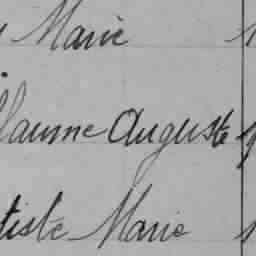 Marie
llaume Auguste
tiste Marie